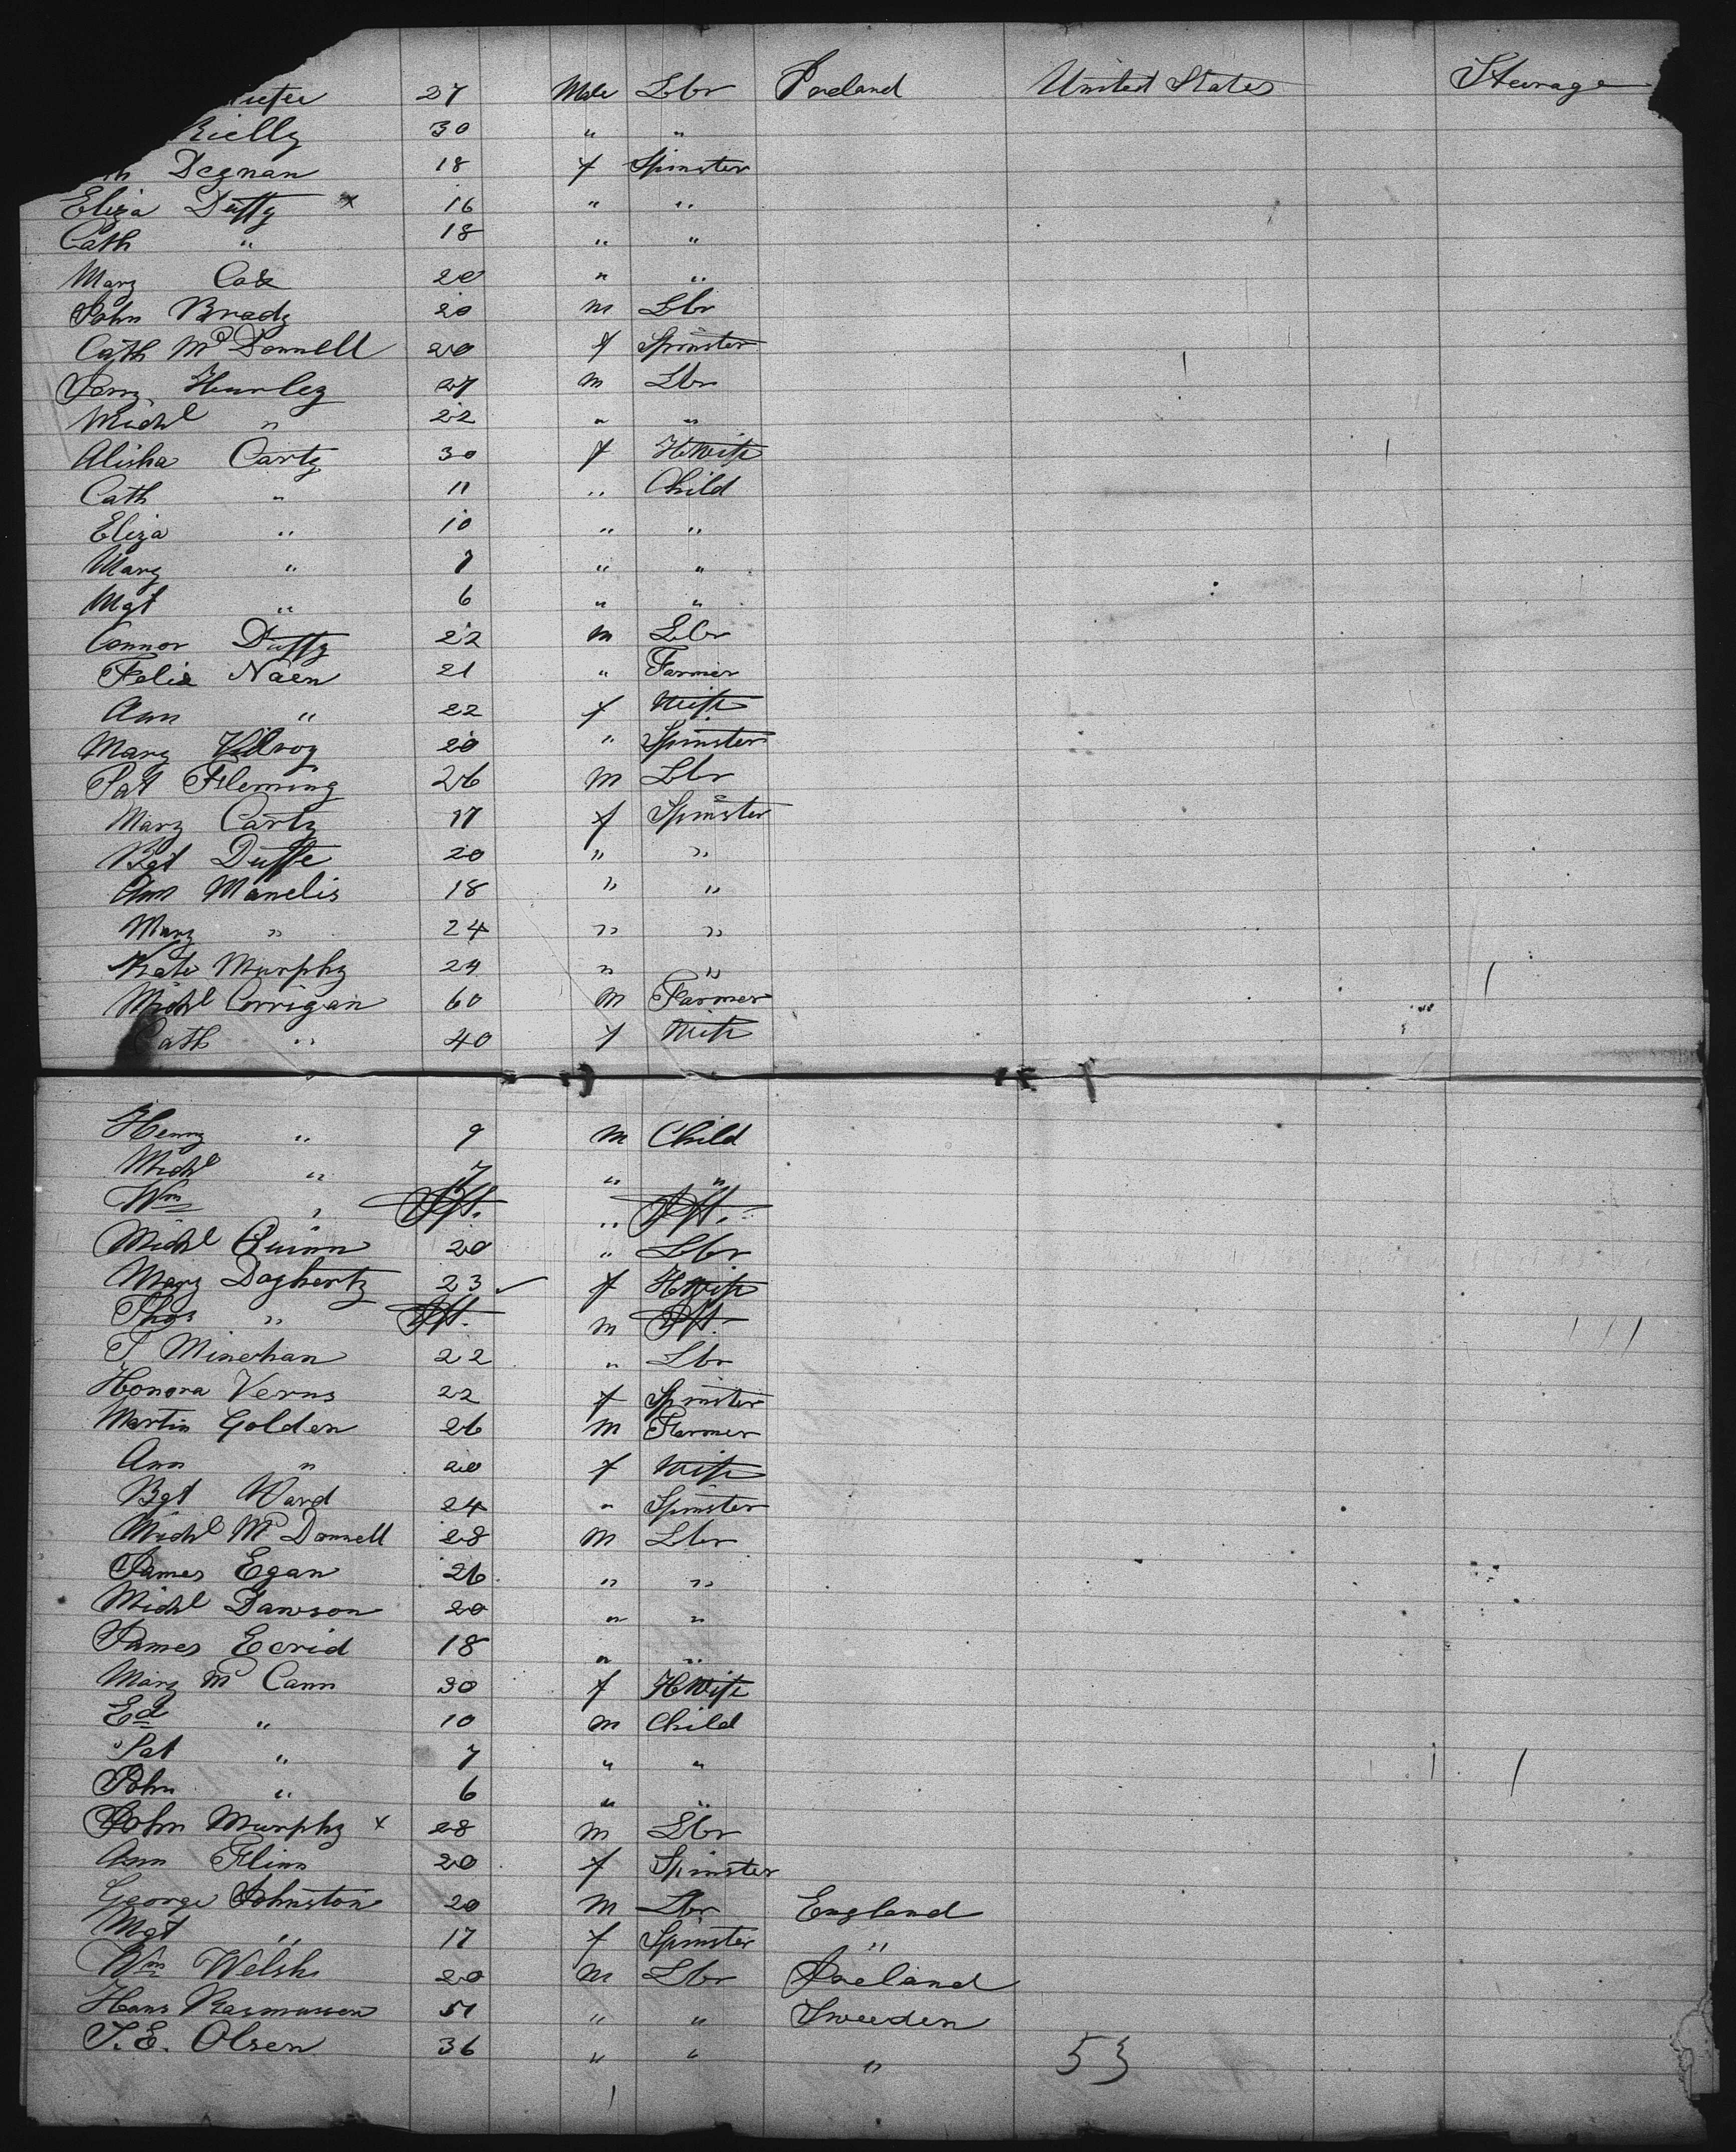 27 Male Lbr Ireland United States Steerage
Rielly 30 " "
Degnan 18 f Spinster
Eliza Duffy x 16 " "
Cath " 18 " "
Mary Cox 20 " "
John Brady 20 m Lbr
Cath McDonnell 20 f Spinster
Jerry Hurley 27 m Lbr
Michl " 22 " "
Alisha Carty 30 f HWife
Cath " 11 " Child
Eliza " 10 " "
Mary " 7 " "
Mgt " 6 " "
Connor Duffy 22 m Lbr
Felix Naen 21 " Farmer
Ann " 22 f Wife
Mary Kilroy 20 " Spinster
Pat Fleming 26 m Lbr
Mary Carty 17 f Spinster
Bgt Duffe 20 " "
Ann Manelis 18 " "
Mary " 24 " "
Kate Murphy 24 " "
Michl Corrigan 60 m Farmer
Cath " 40 f Wife
Henry " 9 m Child
Michl " 7 " "
Wm " Ift. " Ift.
Michl Quinn 20 " Lbr
Mary Dogherty 23 f HWife
Thos " Ift. m Ift.
T Minehan 22 " Lbr
Honora Verns 22 f Spinster
Martin Golden 26 m Farmer
Ann " 20 f Wife
Bgt Ward 24 " Spinster
Michl McDonnell 28 m Lbr
James Egan 26 " "
Michl Dawson 20 " "
James Ecrid 18 " "
Mary McCann 30 f HWife
Ed " 10 m Child
Pat " 7 " "
John " 6 " "
John Murphy x 28 m Lbr
Ann Flinn 20 f Spinster
George Johnston 20 m Lbr England
Mgt " 17 f Spinster "
Wm Welsh 20 m Lbr Ireland
Hans Rasmussen 51 " " Sweeden
T. E. Olsen 36 " " "
53